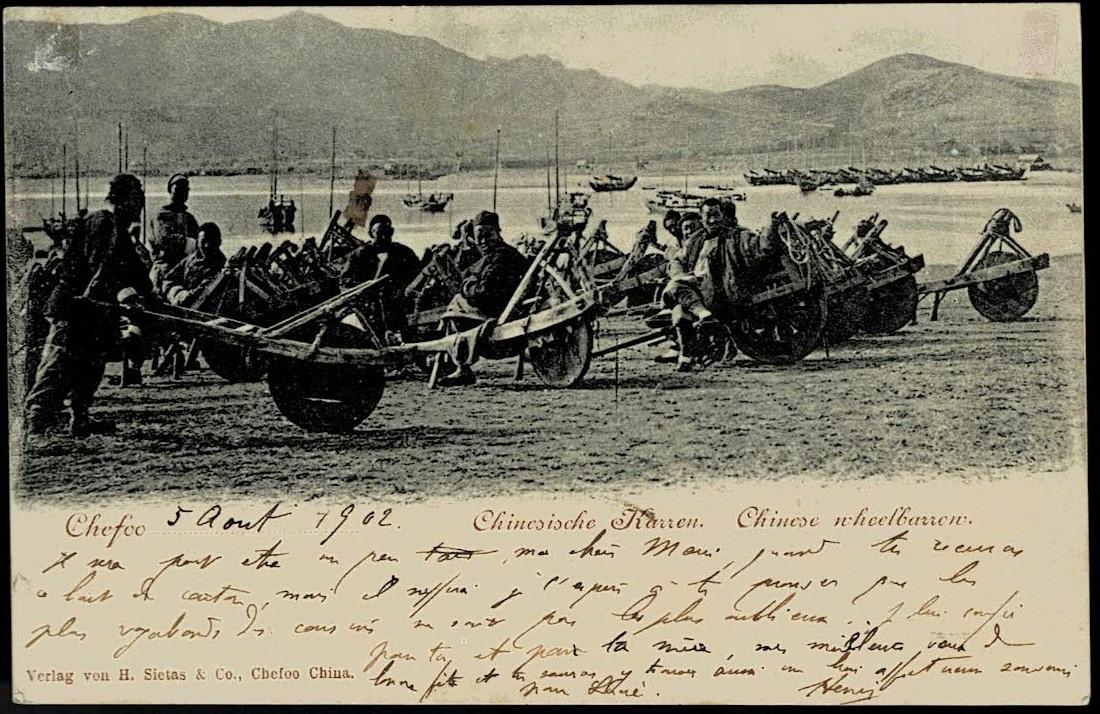 Chefoo 5 Aout 1902. Chinesische Karren. Chinese wheelbarrow.
Il sera peut etre un peu tard, ma chère Marie, quand tu recevras
ce bout de carton, mais il suffira j'espère à te prouver que les
plus vagabonds des cousins ne sont pas les plus oublieux. Je lui confie
pour toi, et pour ta mère, mes meilleurs vœux de
bonne fête et tu sauras y trouver aussi un bien affectueux souvenir
pour René. Henri
Verlag von H. Sietas & Co., Chefoo China.